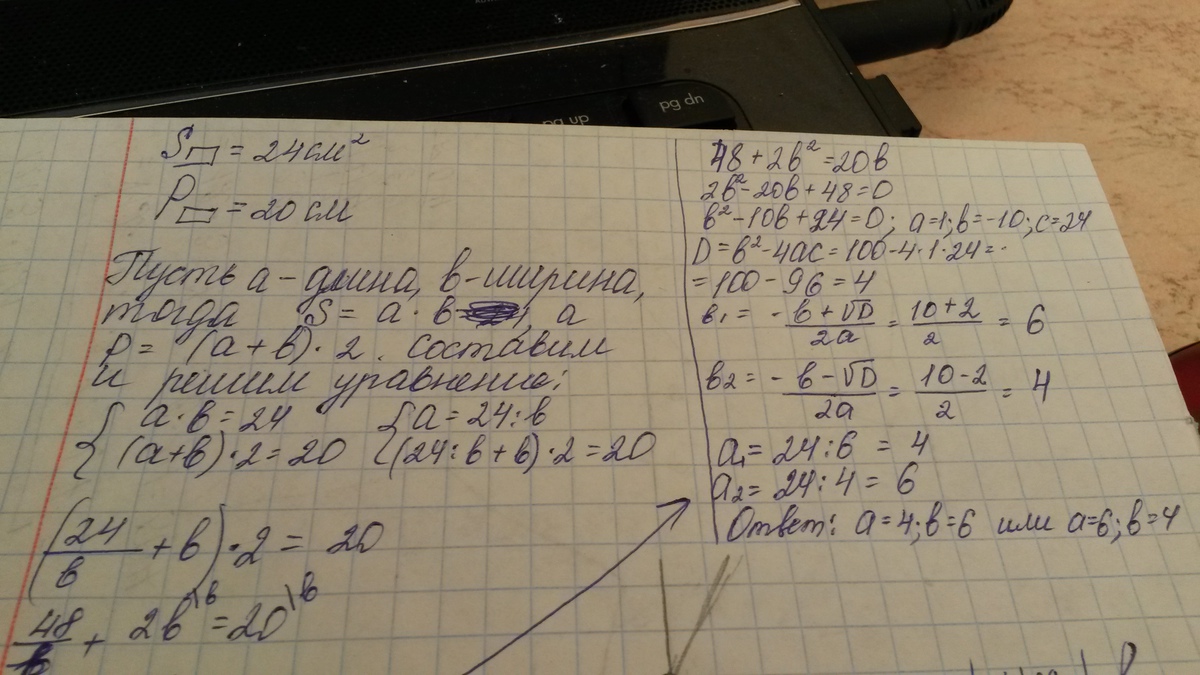 pg dn
pg up
S▭ = 24 см²
P▭ = 20 см
Пусть а - длина, в - ширина,
тогда S = а · в ; а
P = (а + в) · 2. составим
и решим уравнение:
{ а · в = 24 { а = 24 : в
{ (а+в) · 2 = 20 { (24 : в + в) · 2 = 20
(24/в + в) · 2 = 20
48/в + 2в\в = 20\в
48 + 2в² = 20в
2в² - 20в + 48 = 0
в² - 10в + 24 = 0; а=1; в=-10; с=24
D = в² - 4ас = 100 - 4·1·24 =
= 100 - 96 = 4
в₁ = - в + √D / 2а = 10 + 2 / 2 = 6
в₂ = - в - √D / 2а = 10 - 2 / 2 = 4
а₁ = 24 : 6 = 4
а₂ = 24 : 4 = 6
Ответ: а=4; в=6 или а=6; в=4